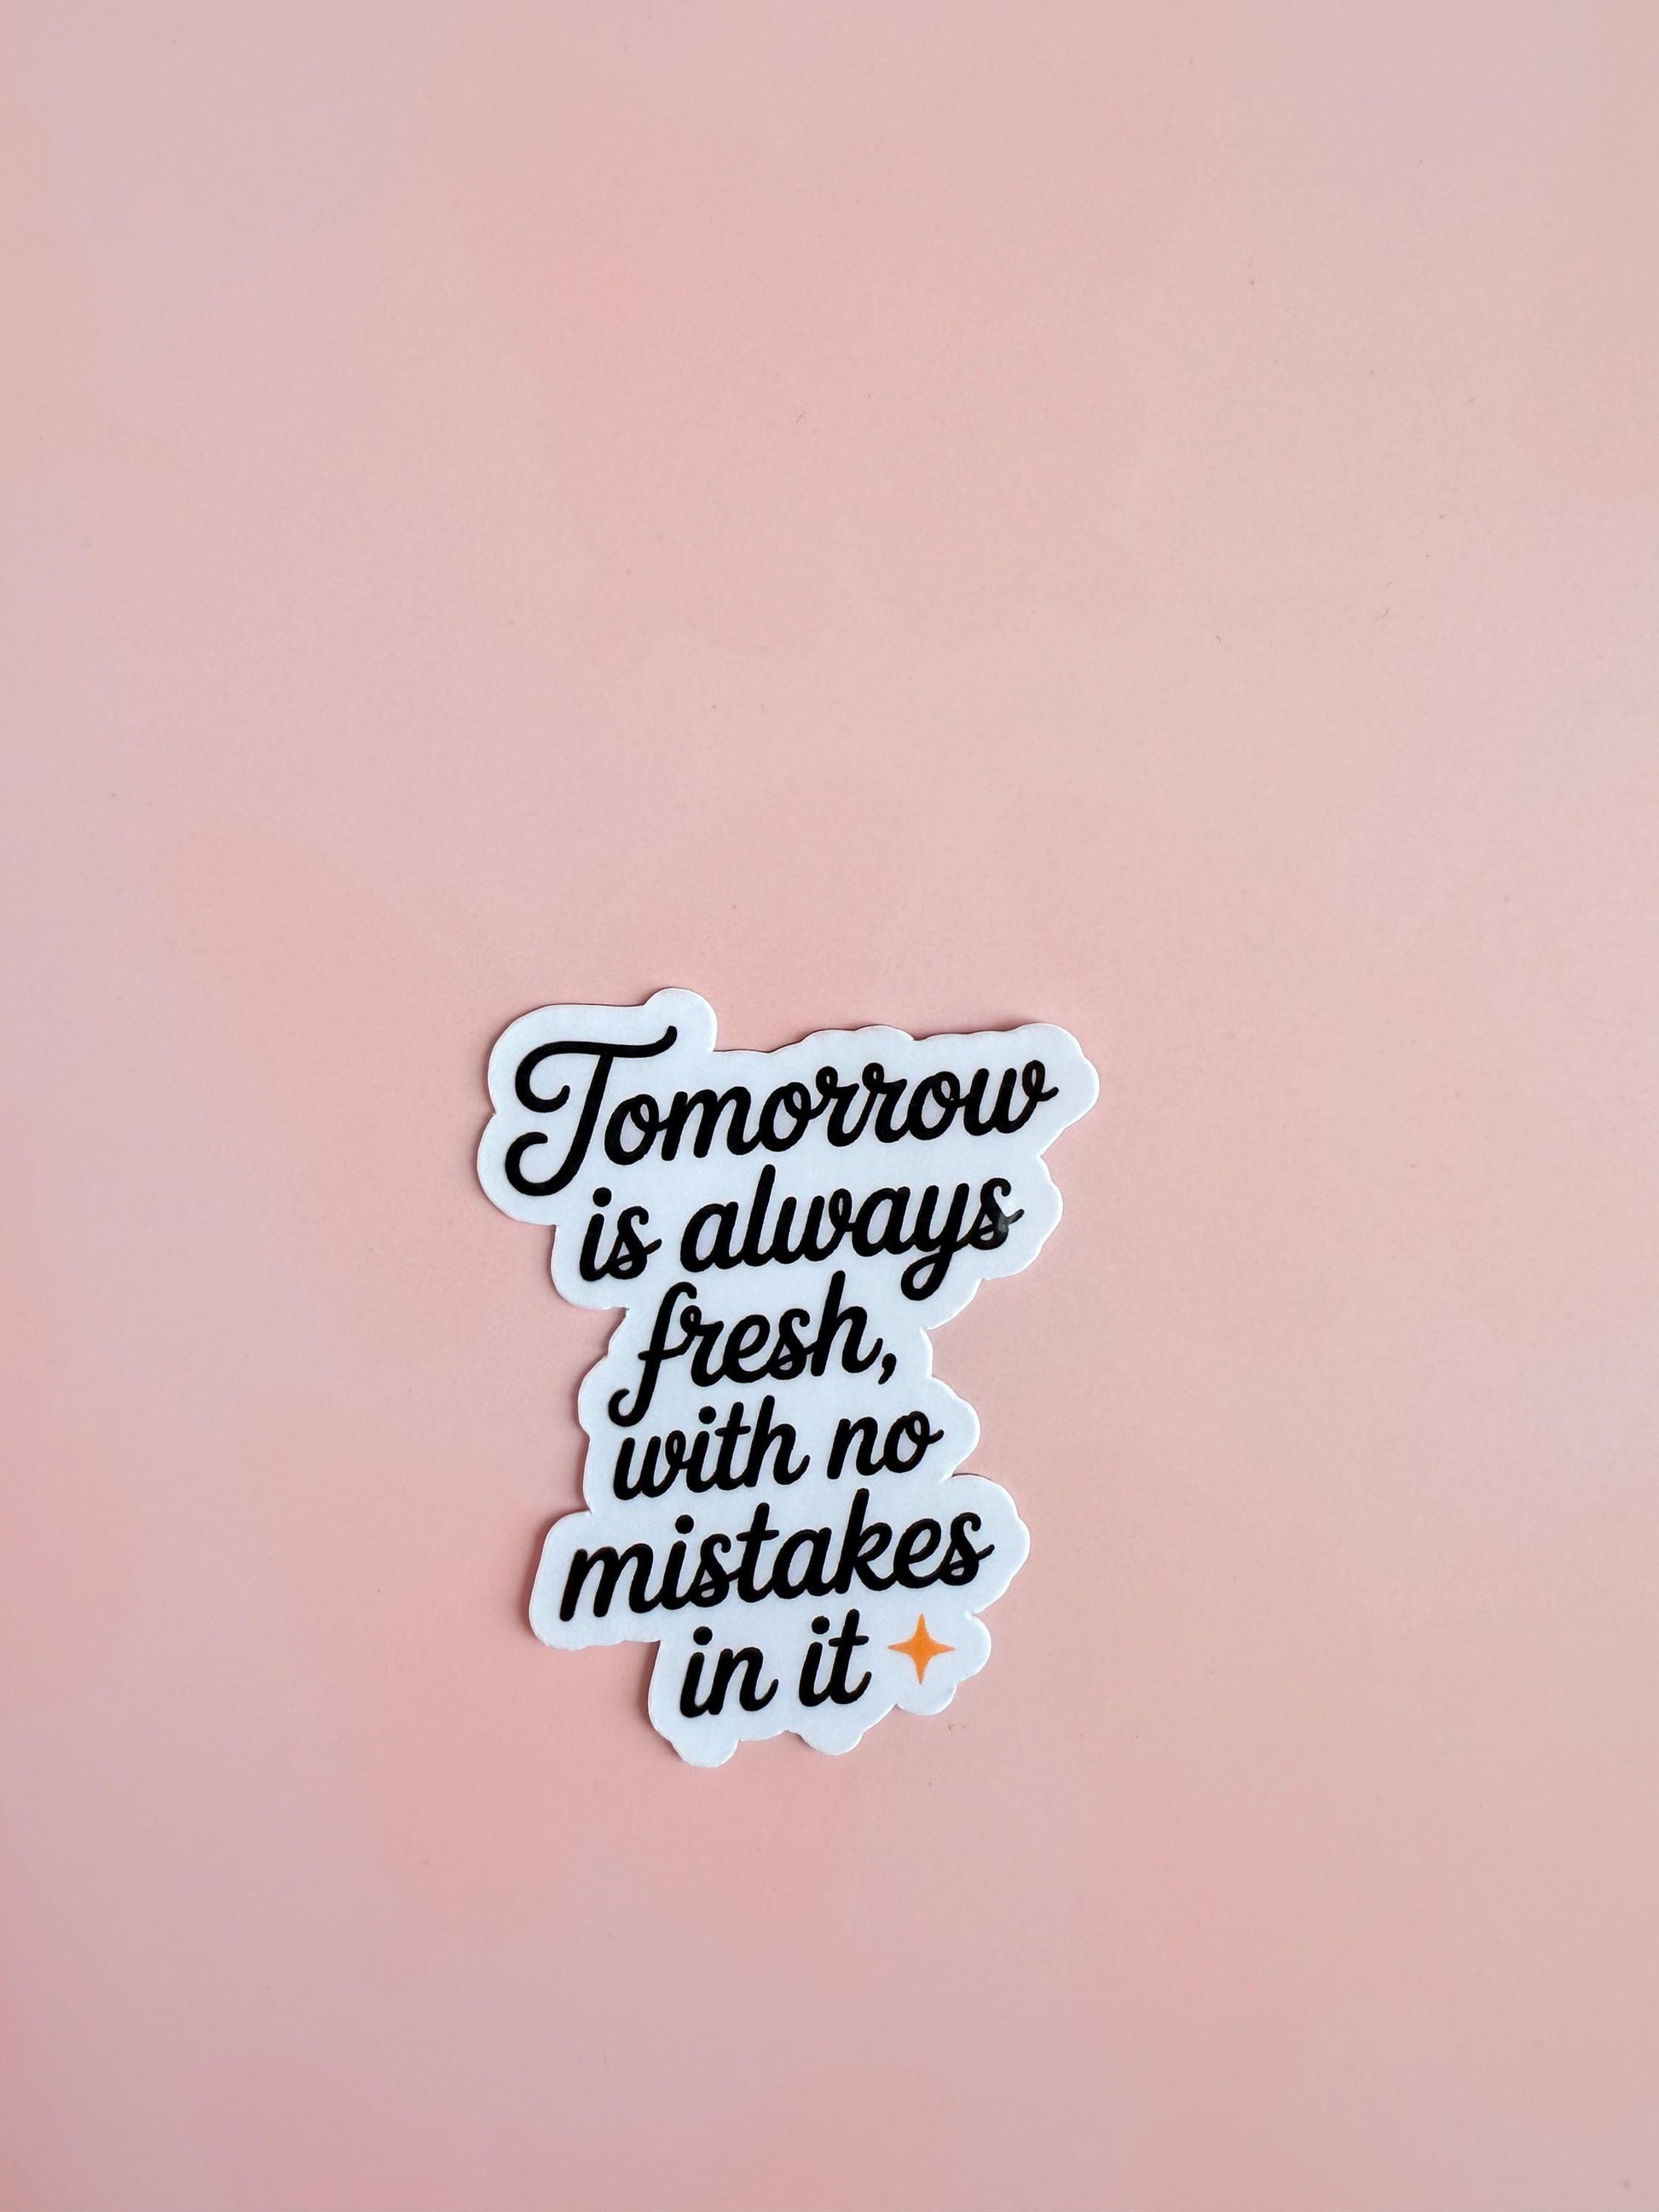 Tomorrow
is always
fresh,
with no
mistakes
in it